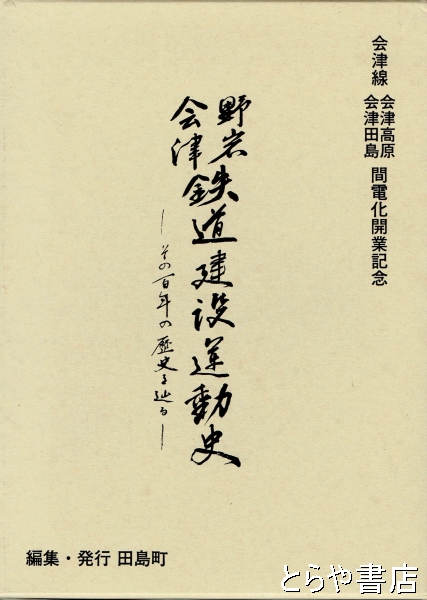 会津線 会津高原 会津田島 間電化開業記念
野岩 会津 鉄道建設運動史
―その百年の歴史を辿る―
編集・発行 田島町
とらや書店